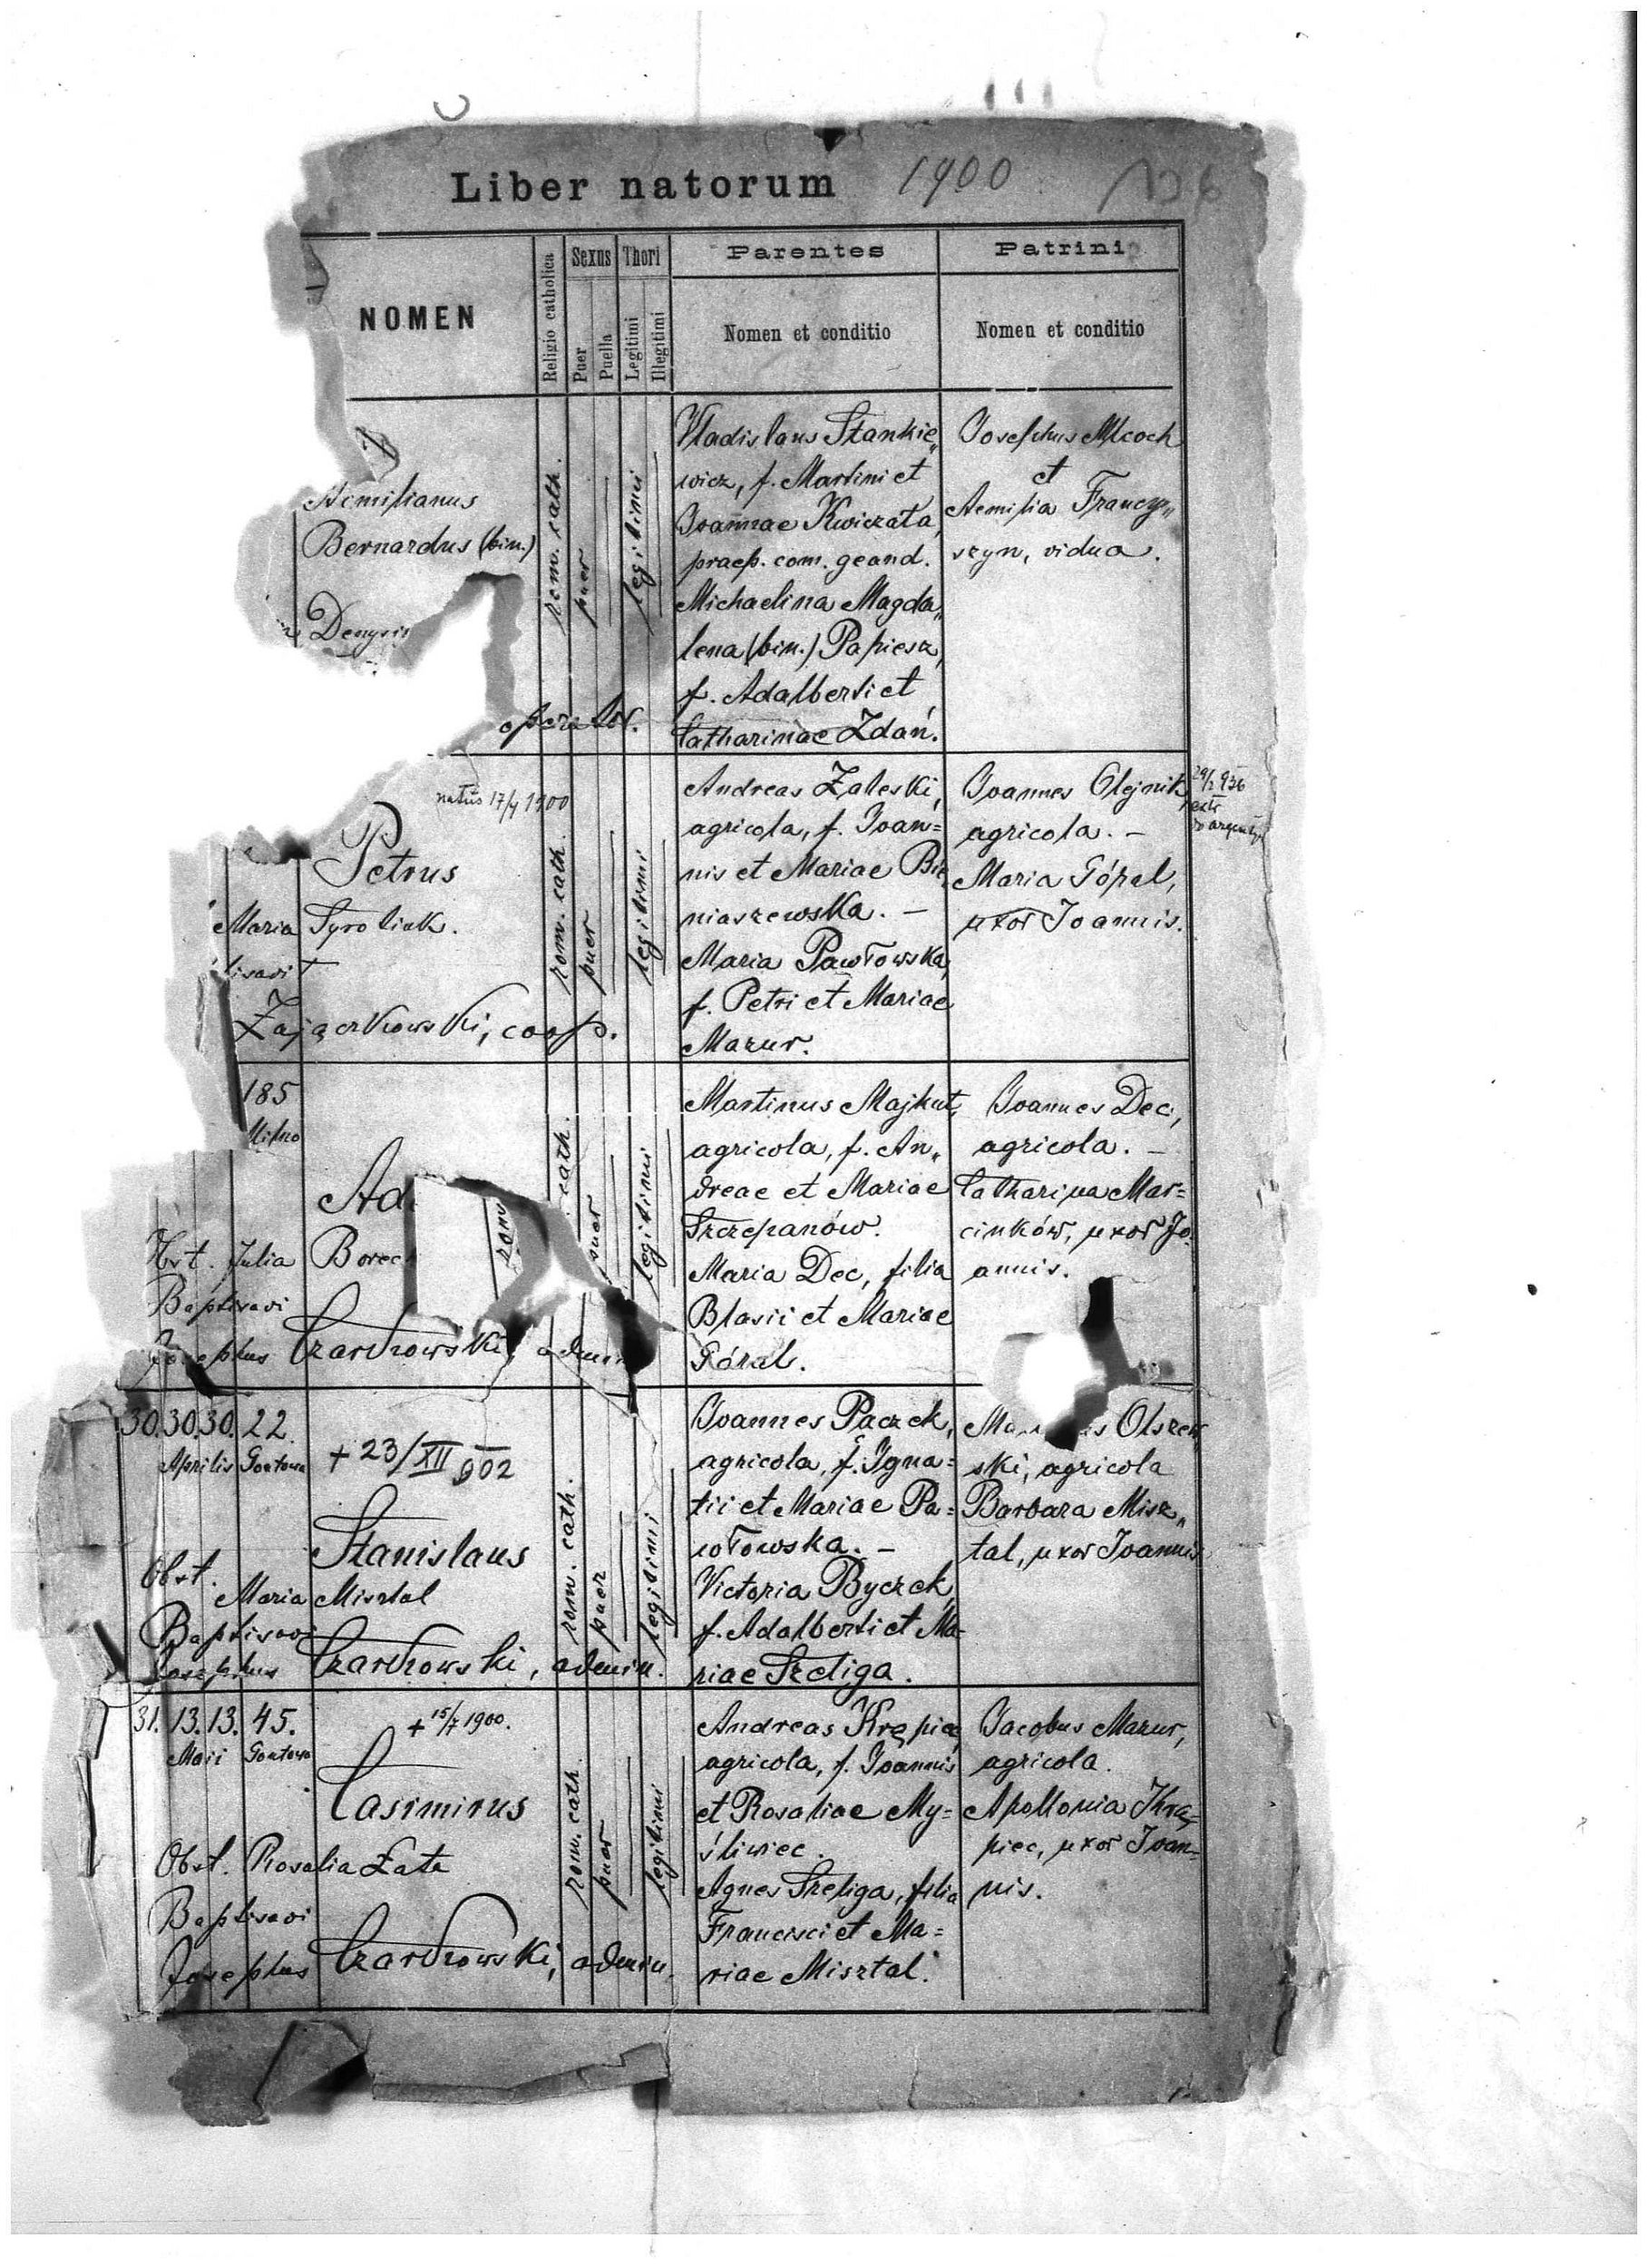 Liber natorum 1900
136
NOMEN
Religio catholica
Sexus
Puer
Puella
Thori
Legitimi
Illegitimi
Parentes
Nomen et conditio
Patrini
Nomen et conditio
Aemilianus
Bernardus (bin.)
rom. cath.
puer
legitimi
Vladislaus Stankie„
wicz, f. Martini et
Joannae Kwiczała,
praep. com. geand.
Michaelina Magda„
lena (bin.) Papiesz,
f. Adalberti et
Catharinae Żdań.
Josephus Mcoch
et
Aemilia Franczy„
szyn, vidua.
natus 17/4 1900
Petrus
Maria Syrotiuk.
Zajączkowski, coop.
rom. cath.
puer
legitimi
Andreas Zaleski,
agricola, f. Joan=
nis et Mariae Bie
niaszewska. —
Maria Pawłowska,
f. Petri et Mariae
Mazur.
Joannes Olejnik,
agricola. —
Maria Góral,
uxor Joannis.
185
Milno
Ad
Obst. Julia Borec
Baptisavi
Josephus Czarkowski, admin
rom. cath.
puer
legitimi
Martinus Majkut,
agricola, f. An„
dreae et Mariae
Szczepanów.
Maria Dec, filia
Blasii et Mariae
Góral.
Joannes Dec,
agricola. —
Catharina Mar=
cinków, uxor Jo
annis.
30. 30. 30. 22.
Aprilis Gontowa
+ 23/XII 902
Stanislaus
Obst.
Maria Misztal
Baptisavi
Josephus Czarkowski, admin.
rom. cath.
puer
legitimi
Joannes Paczek,
agricola, f. Igna=
tii et Mariae Pa=
włowska. —
Victoria Byczek,
f. Adalberti et Ma=
riae Szeliga.
Olszew
ski, agricola
Barbara Misz„
tal, uxor Joannis
31. 13. 13. 45.
Maii Gontowa
+ 15/7 1900.
Casimirus
Obst. Rosalia Łata
Baptisavi
Josephus Czarkowski, admin.
rom. cath.
puer
legitimi
Andreas Krąpiec
agricola, f. Joannis
et Rosaliae My=
śliwiec.
Agnes Szeliga, filia
Francisci et Ma=
riae Misztal.
Jacobus Mazur,
agricola.
Apollonia Kra=
piec, uxor Joan=
nis.